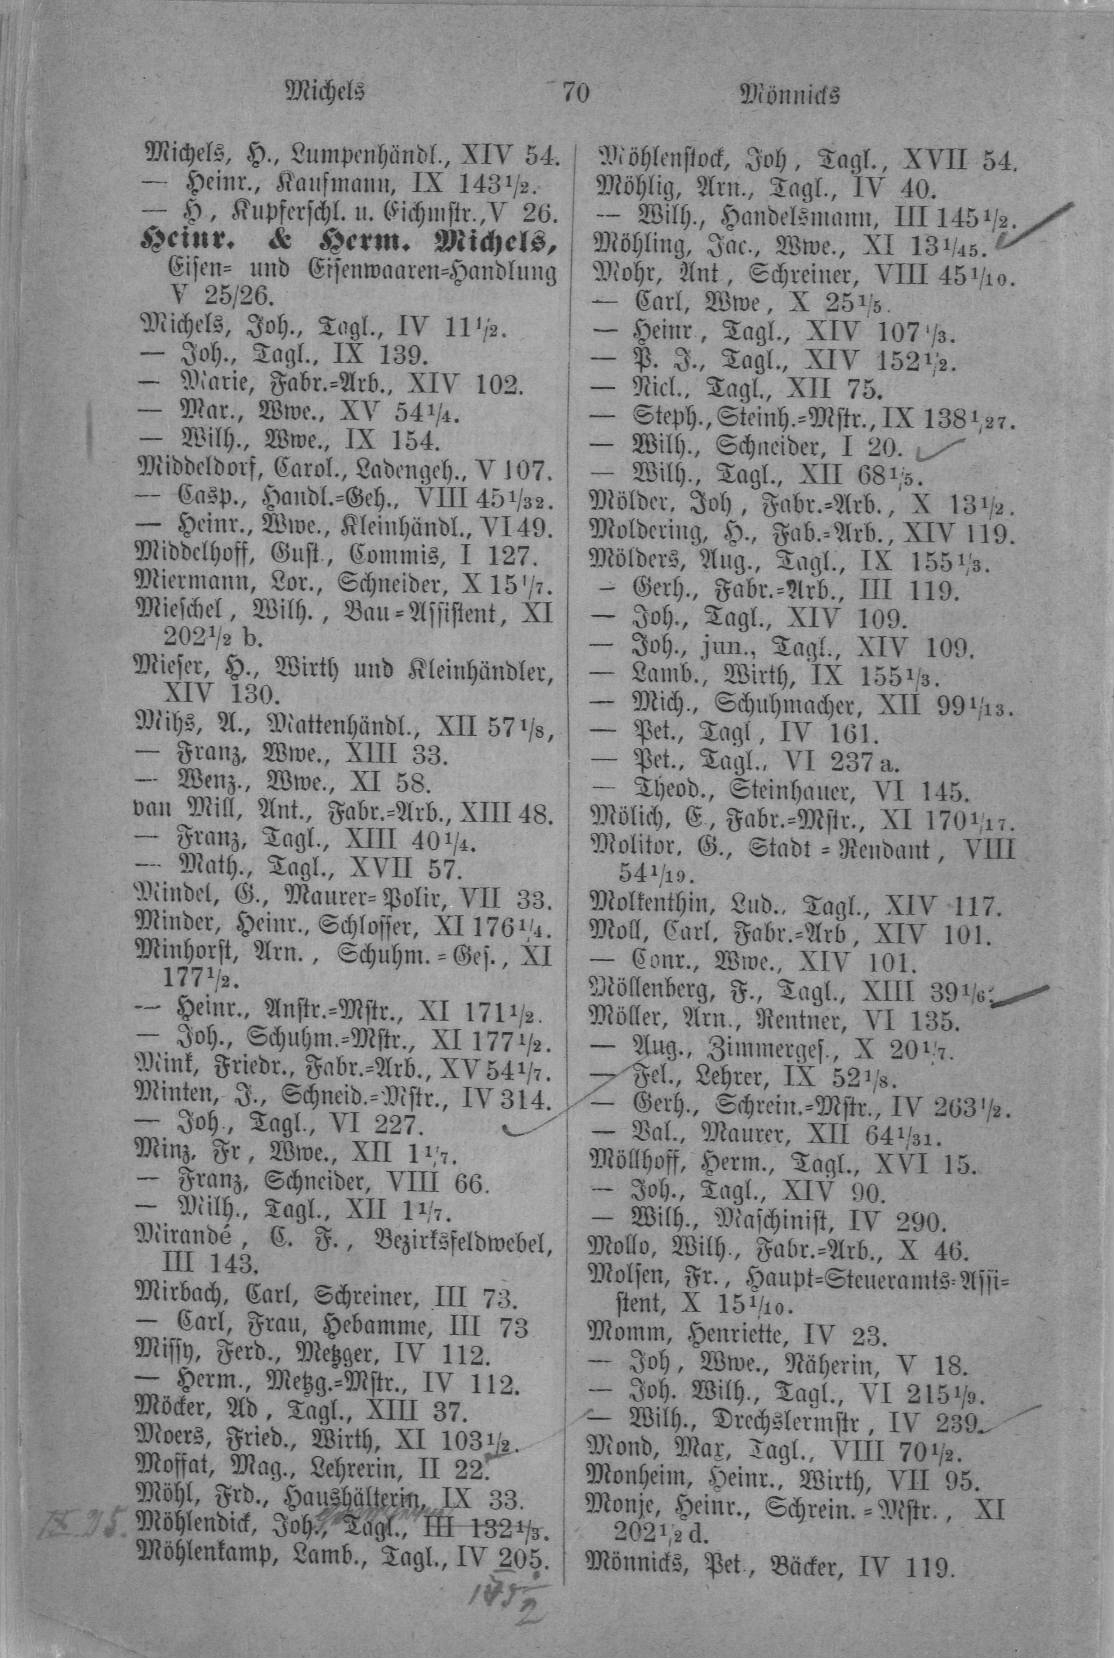 Michels 70 Mönnicks
Michels, H., Lumpenhändl., XIV 54.
— Heinr., Kaufmann, IX 143 1/2.
— H, Kupferschl. u. Eichmstr., V 26.
Heinr. & Herm. Michels,
Eisen- und Eisenwaaren-Handlung
V 25/26.
Michels, Joh., Tagl., IV 11 1/2.
— Joh., Tagl., IX 139.
— Marie, Fabr.-Arb., XIV 102.
— Mar., Wwe., XV 54 1/4.
— Wilh., Wwe., IX 154.
Middeldorf, Carol., Ladengeh., V 107.
— Casp., Handl.-Geh., VIII 45 1/32.
— Heinr., Wwe., Kleinhändl., VI 49.
Middelhoff, Gust., Commis, I 127.
Miermann, Lor., Schneider, X 15 1/7.
Mieschel, Wilh., Bau-Assistent, XI
202 1/2 b.
Mieser, H., Wirth und Kleinhändler,
XIV 130.
Mihs, A., Mattenhändl., XII 57 1/8,
— Franz, Wwe., XIII 33.
— Wenz., Wwe., XI 58.
van Mill, Ant., Fabr.-Arb., XIII 48.
— Franz, Tagl., XIII 40 1/4.
— Math., Tagl., XVII 57.
Mindel, G., Maurer-Polir, VII 33.
Minder, Heinr., Schlosser, XI 176 1/4.
Minhorst, Arn., Schuhm.-Ges., XI
177 1/2.
— Heinr., Anstr.-Mstr., XI 171 1/2.
— Joh., Schuhm.-Mstr., XI 177 1/2.
Mink, Friedr., Fabr.-Arb., XV 54 1/7.
Minten, J., Schneid.-Mstr., IV 314.
— Joh., Tagl., VI 227.
Minz, Fr, Wwe., XII 1 1/7.
— Franz, Schneider, VIII 66.
— Milh., Tagl., XII 1 1/7.
Mirandé, C. F., Bezirksfeldwebel,
III 143.
Mirbach, Carl, Schreiner, III 73.
— Carl, Frau, Hebamme, III 73
Missy, Ferd., Metzger, IV 112.
— Herm., Metzg.-Mstr., IV 112.
Möcker, Ad, Tagl., XIII 37.
Moers, Fried., Wirth, XI 103 1/2.
Moffat, Mag., Lehrerin, II 22.
Möhl, Frd., Haushälterin, IX 33.
IX 25. Möhlendick, Joh., Tagl., III 132 1/3.
Möhlenkamp, Lamb., Tagl., IV 205.
Möhlenstock, Joh, Tagl., XVII 54.
Möhlig, Arn., Tagl., IV 40.
— Wilh., Handelsmann, III 145 1/2.
Möhling, Jac., Wwe., XI 13 1/45.
Mohr, Ant, Schreiner, VIII 45 1/10.
— Carl, Wwe, X 25 1/5.
— Heinr, Tagl., XIV 107 1/3.
— P. J., Tagl., XIV 152 1/2.
— Nicl., Tagl., XII 75.
— Steph., Steinh.-Mstr., IX 138 1/27.
— Wilh., Schneider, I 20.
— Wilh., Tagl., XII 68 1/5.
Mölder, Joh, Fabr.-Arb., X 13 1/2.
Moldering, H., Fab.-Arb., XIV 119.
Mölders, Aug., Tagl., IX 155 1/3.
— Gerh., Fabr.-Arb., III 119.
— Joh., Tagl., XIV 109.
— Joh., jun., Tagl., XIV 109.
— Lamb., Wirth, IX 155 1/3.
— Mich., Schuhmacher, XII 99 1/13.
— Pet., Tagl, IV 161.
— Pet., Tagl., VI 237 a.
— Theod., Steinhauer, VI 145.
Mölich, E, Fabr.-Mstr., XI 170 1/17.
Molitor, G., Stadt-Rendant, VIII
54 1/19.
Molkenthin, Lud., Tagl., XIV 117.
Moll, Carl, Fabr.-Arb, XIV 101.
— Conr., Wwe., XIV 101.
Möllenberg, F., Tagl., XIII 39 1/6.
Möller, Arn., Rentner, VI 135.
— Aug., Zimmerges., X 20 1/7.
— Fel., Lehrer, IX 52 1/8.
— Gerh., Schrein.-Mstr., IV 263 1/2.
— Val., Maurer, XII 64 1/31.
Möllhoff, Herm., Tagl., XVI 15.
— Joh., Tagl., XIV 90.
— Wilh., Maschinist, IV 290.
Mollo, Wilh., Fabr.-Arb., X 46.
Molsen, Fr., Haupt-Steueramts-Assi-
stent, X 15 1/10.
Momm, Henriette, IV 23.
— Joh, Wwe., Näherin, V 18.
— Joh. Wilh., Tagl., VI 215 1/9.
— Wilh., Drechslermstr, IV 239.
Mond, Max, Tagl., VIII 70 1/2.
Monheim, Heinr., Wirth, VII 95.
Monje, Heinr., Schrein.-Mstr., XI
202 1/2 d.
Mönnicks, Pet, Bäcker, IV 119.